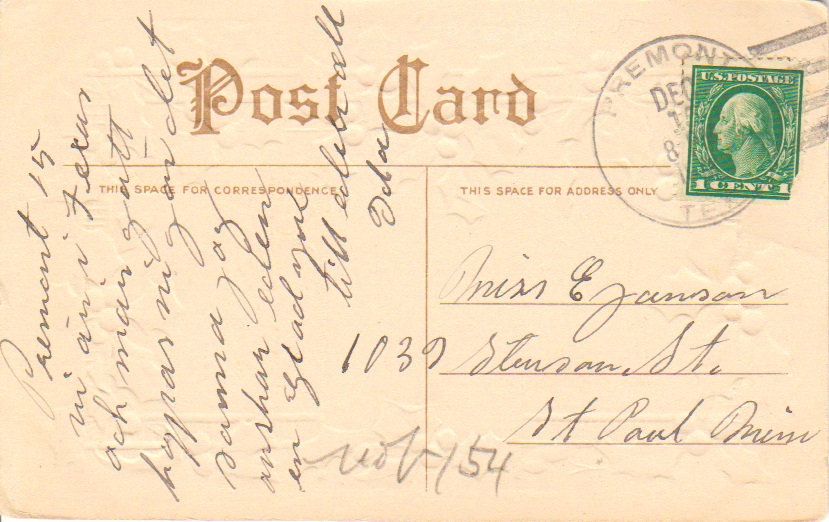 Post Card
THIS SPACE FOR CORRESPONDENCE
THIS SPACE FOR ADDRESS ONLY
PREMONT
DEC
8
TEX
U.S. POSTAGE
1 CENT 1
Premont 15
vi är i Texas
och mår gott
hoppas ni gör det
samma jag
önskar eder
en Glad jul
till eder all
Miss E Janson
1039
St.
St Paul Minn
154